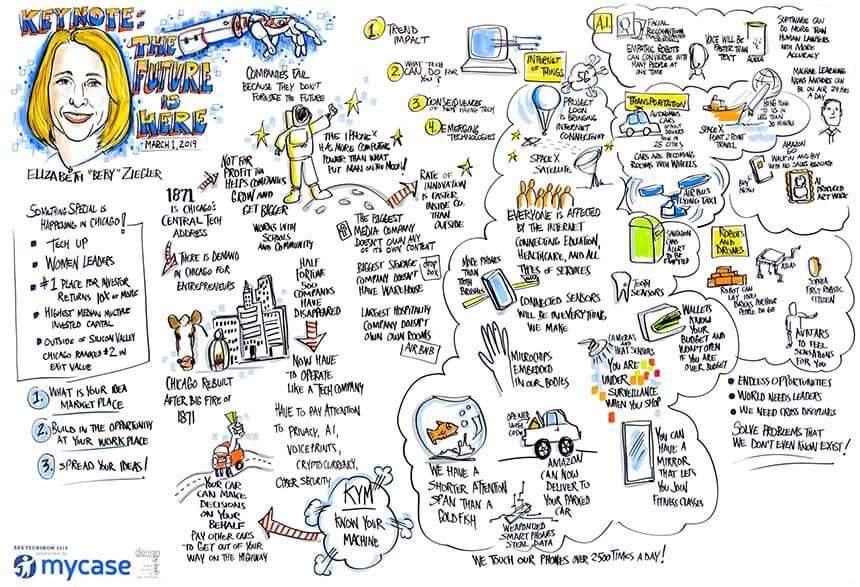 KEYNOTE:
THE
FUTURE
IS
HERE
MARCH 1, 2019
ELIZABETH "BERY" ZIEGLER
SOMETHING SPECIAL IS
HAPPENING IN CHICAGO!
TECH UP
WOMEN LEADERS
#1 PLACE FOR INVESTOR
RETURNS 10X OR MORE
HIGHEST MEDIAN MULTIPLE
INVESTED CAPITAL
OUTSIDE OF SILICON VALLEY
CHICAGO RANKED #2 IN
EXIT VALUE
1. WHAT IS YOUR IDEA
MARKET PLACE
2. BUILD IN THE OPPORTUNITY
AT YOUR WORK PLACE
3. SPREAD YOUR IDEAS!
ABA TECHSHOW 2019
sponsored by
mycase
design
COMPANIES FAIL
BECAUSE THEY DON'T
FORESEE THE FUTURE
THE IPHONE X
HAS MORE COMPUTING
POWER THAN WHAT
PUT MAN ON THE MOON!
NOT FOR
PROFIT THAT
HELPS COMPANIES
GROW AND
GET BIGGER
WORKS WITH
SCHOOLS
AND COMMUNITY
1871
IS CHICAGO'S
CENTRAL TECH
ADDRESS
THERE IS DEMAND
IN CHICAGO FOR
ENTREPRENEURS
CHICAGO REBUILT
AFTER BIG FIRE OF
1871
HALF
FORTUNE
500
COMPANIES
HAVE
DISAPPEARED
NOW HAVE
TO OPERATE
LIKE A TECH COMPANY
HAVE TO PAY ATTENTION
TO PRIVACY, AI,
VOICE PRINTS,
CRYPTO CURRENCY,
CYBER SECURITY
YOUR CAR
CAN MAKE
DECISIONS
ON YOUR
BEHALF
PAY OTHER CARS
TO GET OUT OF YOUR
WAY ON THE HIGHWAY
KYM
KNOW YOUR
MACHINE
1. TREND
IMPACT
2. WHAT TECH
CAN DO FOR
YOU?
3. CONSEQUENCES
OF NOT USING TECH
4. EMERGING
TECHNOLOGIES
RATE OF
INNOVATION
IS FASTER
INSIDE CO.
THAN
OUTSIDE
THE BIGGEST
MEDIA COMPANY
DOESN'T OWN ANY
OF ITS OWN CONTENT
BIGGEST STORAGE
COMPANY DOESN'T
HAVE WAREHOUSE
drop
box
LARGEST HOSPITALITY
COMPANY DOESN'T
OWN OWN ROOMS
AIRBNB
INTERNET
OF THINGS
5G
PROJECT
LOON
IS BRINGING
INTERNET
CONNECTIVITY
SPACE X
SATELLITE
EVERYONE IS AFFECTED
BY THE INTERNET
CONNECTING EDUCATION,
HEALTHCARE, AND ALL
TYPES OF SERVICES
MORE PHONES
THAN
TOOTH
BRUSHES
CONNECTED SENSORS
WILL BE IN EVERYTHING
WE MAKE
MICROCHIPS
EMBEDDED
IN OUR BODIES
WE HAVE A
SHORTER ATTENTION
SPAN THAN A
GOLDFISH
OPENED
WITH
CODE
AMAZON
CAN NOW
DELIVER TO
YOUR PARKED
CAR
WEAPONIZED
SMART PHONES
STEAL DATA
WE TOUCH OUR PHONES OVER 2500 TIMES A DAY!
A.I.
FACIAL
RECOGNITION
EMPATHIC ROBOTS
CAN CONVERSE WITH
MANY PEOPLE AT
ONE TIME
VOICE WILL BE
FASTER THAN
TEXT
ALEXA
SOFTWARE CAN
DO MORE THAN
HUMAN LAWYERS
WITH MORE
ACCURACY
MACHINE LEARNING
NEWS ANCHORS CAN
BE ON AIR 24 HRS
A DAY
TRANSPORTATION
AUTONOMOUS
CARS
WITHOUT
DRIVERS
NOW IN
25 CITIES
CARS ARE BECOMING
ROOMS WITH WHEELS
SPACE X
POINT 2 POINT
TRAVEL
HONG KONG
TO US IN
LESS THAN
30 MINUTES
AIR BUS
FLYING TAXI
AMAZON
GO
WALK IN AND BUY
WITH NO SALES ASSOCIATE
BUY
NOW
AI
PRODUCED
ART WORK
SANITATION
CANS
ALERT TO
BE EMPTIED
TOOTH
SENSORS
ROBOTS
AND
DRONES
ROBOT CAN
LAY 1000
BRICKS PER HOUR
PEOPLE DO 60
ATLAS
SOPHIA
FIRST ROBOTIC
CITIZEN
AVATARS
TO FEEL
SENSATIONS
FOR YOU
WALLETS
KNOW
YOUR
BUDGET AND
WON'T OPEN
IF YOU ARE
OVER BUDGET
CAMERAS
AND
HEAT SENSORS
YOU ARE
UNDER
SURVEILLANCE
WHEN YOU SHOP
YOU CAN
HAVE A
MIRROR
THAT LETS
YOU JOIN
FITNESS CLASSES
ENDLESS OPPORTUNITIES
WORLD NEEDS LEADERS
WE NEED CROSS DISCIPLINES
SOLVE PROBLEMS THAT
WE DON'T EVEN KNOW EXIST!